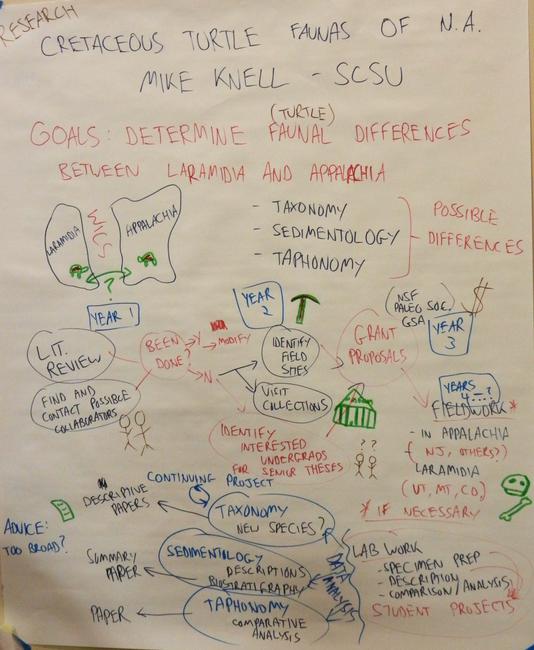 RESEARCH
CRETACEOUS TURTLE FAUNAS OF N.A.
MIKE KNELL - SCSU
(TURTLE)
GOALS: DETERMINE FAUNAL DIFFERENCES
BETWEEN LARAMIDIA AND APPALACHIA
LARAMIDIA
WIS
APPALACHIA
?
- TAXONOMY
- SEDIMENTOLOGY
- TAPHONOMY
POSSIBLE
DIFFERENCES
YEAR 1
LIT.
REVIEW
FIND AND
CONTACT POSSIBLE
COLLABORATORS
BEEN
DONE?
Y
MODIFY
N
YEAR
2
IDENTIFY
FIELD
SITES
VISIT
COLLECTIONS
IDENTIFY
INTERESTED
UNDERGRADS
FOR SENIOR THESES
? ?
GRANT
PROPOSALS
(NSF
PALEO SOC.
GSA)
$
YEAR
3
YEARS
4 - ?
FIELDWORK *
- IN APPALACHIA
(NJ, OTHERS?)
LARAMIDIA
(UT, MT, CO)
* IF NECESSARY
LAB WORK
- SPECIMEN PREP
- DESCRIPTION
- COMPARISON/ANALYSIS
STUDENT PROJECTS
DATA
ANALYSIS
CONTINUING PROJECT
TAXONOMY
NEW SPECIES?
DESCRIPTIVE
PAPERS
SEDIMENTOLOGY
DESCRIPTIONS
BIOSTRATIGRAPHY
SUMMARY
PAPER
TAPHONOMY
COMPARATIVE
ANALYSIS
PAPER
ADVICE:
TOO BROAD?